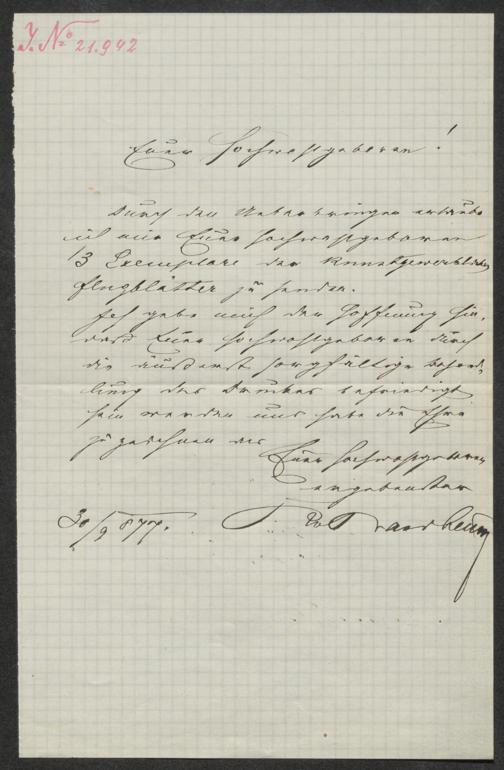 J. No 21.942
Euer Hochwohlgeboren!
Durch den Ueberbringer erlaube
ich mir Euer Hochwohlgeboren
13 Exemplare der Kunstgewerblichen
Flugblätter zu senden.
Ich gebe mich der Hoffnung hin,
dass Euer Hochwohlgeboren durch
die äußerst sorgfältige Behand-
lung des Druckes befriedigt
sein werden und habe die Ehre
zu zeichnen als
Euer Hochwohlgeboren
ergebenster
30/9 877.